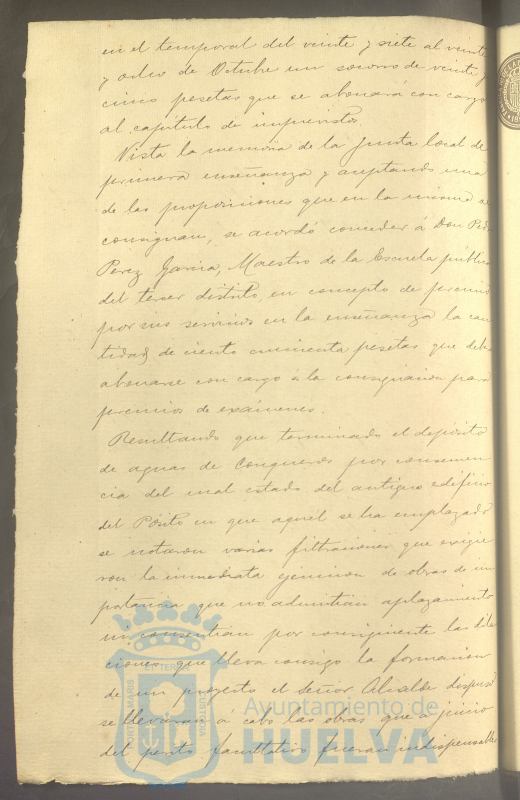 en el temporal del veinte y siete al veinte
y ocho de Octubre un socorro de veinte y
cinco pesetas que se abonará con cargo
al capítulo de imprevistos.
Vista la memoria de la Junta local de
primera enseñanza y aceptando una
de las proposiciones que en la misma se
consignan, se acordó conceder á Don Pedro
Perez Garcia, Maestro de la Escuela pública
del tercer distrito, en concepto de premio
por sus servicios en la enseñanza la can
tidad de ciento cincuenta pesetas que debe
abonarse con cargo á la consignacion para
premios de exámenes.
Resultando que terminado el depósito
de aguas de Conqueros por consecuen
cia del mal estado del antiguo edificio
del Pósito en que aquel se ha emplazado
se notaron varias filtraciones que exigie
ron la inmediata ejecucion de obras de im
portancia que no admitian aplazamiento
ni consentian por consiguiente las dila
ciones que lleva consigo la formacion
de un proyecto el señor Alcalde dispuso
se llevaran á cabo las obras que á juicio
del perito facultativo fueran indispensables
PORTUS MARIS
ET TERRE
CUSTODIA
Ayuntamiento de
HUELVA